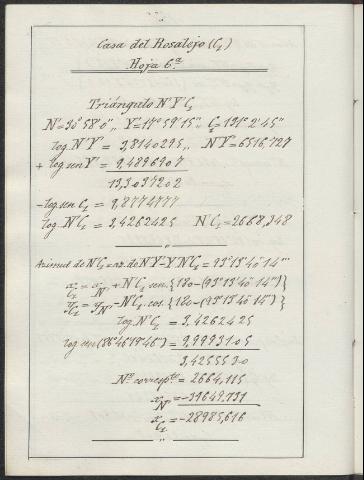 Casa del Rosalejo (C₁)
Hoja 6.ª
Triángulo N'Y'C₁
N'=30°58'0",, Y'=17°59'15",, C₁=131°2'45"
log. N'Y' = 3,8140295,, N'Y'=6516,727
+ log sen Y' = 9,4896907
13,3037202
- log. sen C₁ = 9,8774777
log. N'C₁ = 3,4262425 N'C₁=2668,348
Azimud de N'C₁=az. de N'Y'-Y'N'C₁=93°13'40'14'''
x C₁ = x N' + N'C₁ sen. {180-(93°13'40'14''')}
y C₁ = y N' - N'C₁ cos. {180-(93°13'40'14''')}
log. N'C₁ = 3,4262425
log sen (86°46'19'46''') = 9,9993105
3,4255530
Nº correspte = 2664,115
x N' = -31649,731
x C₁ = -28985,616